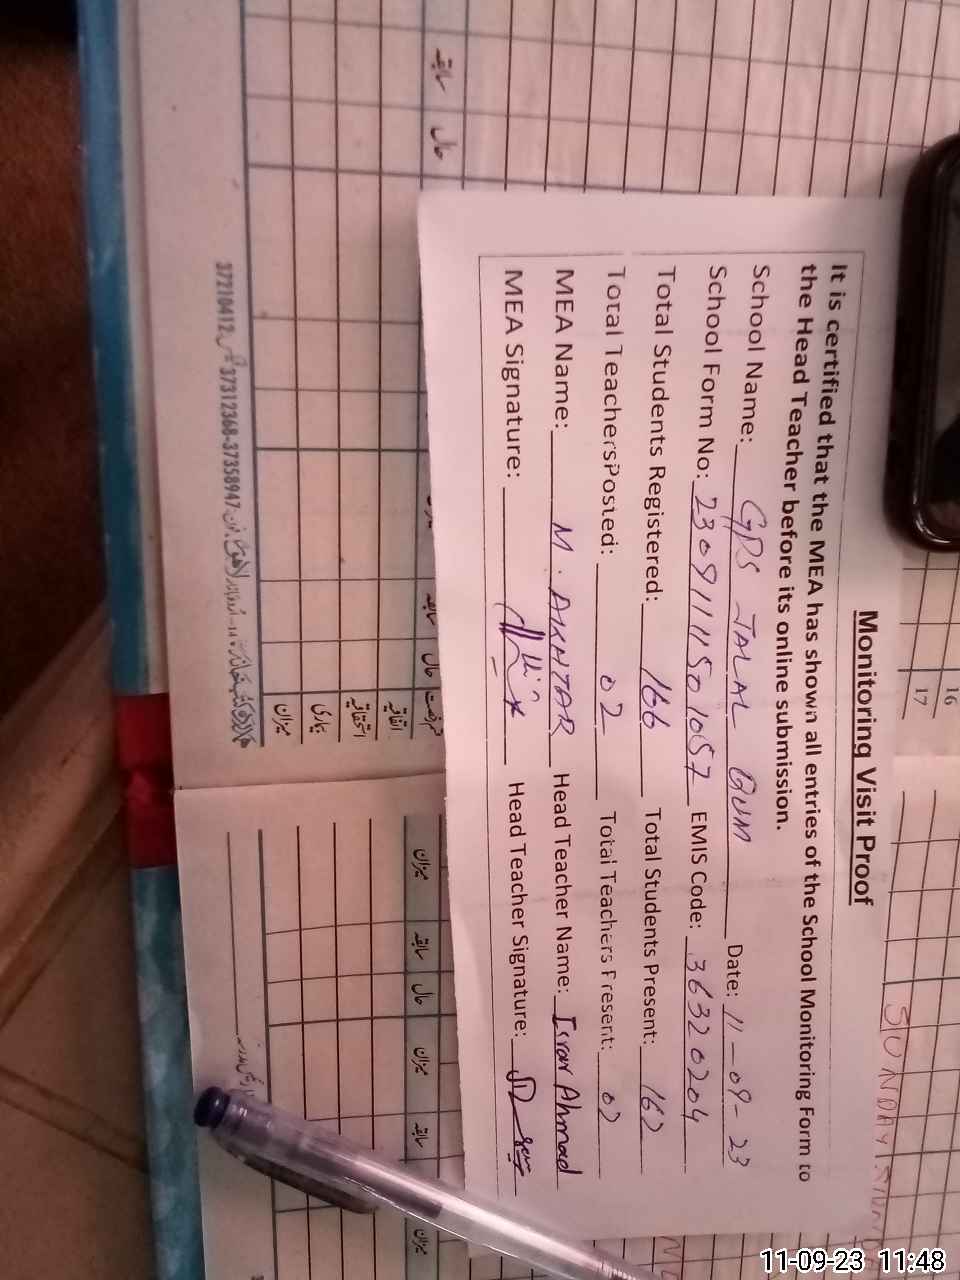 Monitoring Visit Proof
It is certified that the MEA has shown all entries of the School Monitoring Form to
the Head Teacher before its online submission.
School Name: GPS JALAL QUM Date: 11-09-23
School Form No: 23091111501057 EMIS Code: 36320204
Total Students Registered: 166 Total Students Present: 162
Total Teachers Posted: 02 Total Teachers Present: 02
MEA Name: M. AKHTAR Head Teacher Name: Israr Ahmad
MEA Signature: Head Teacher Signature:
16
17
SUNDAY
سابقہ
حال
سابقہ حال
اتفاقیہ
استحقاقیہ
بیماری
میزان
میزان سابقہ حال میزان سابقہ میزان
37210412 37312368-37358947
11-09-23 11:48